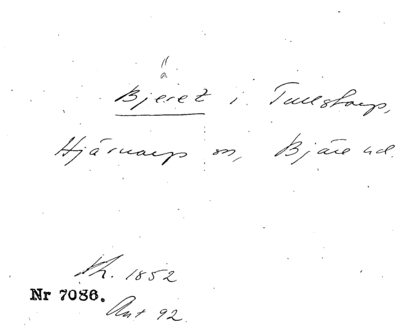 ä
Bjeret i Tullstorp,
Hjärnarp sn, Bjäre hd.
Kh. 1852
Nr 7086.
Ant 92